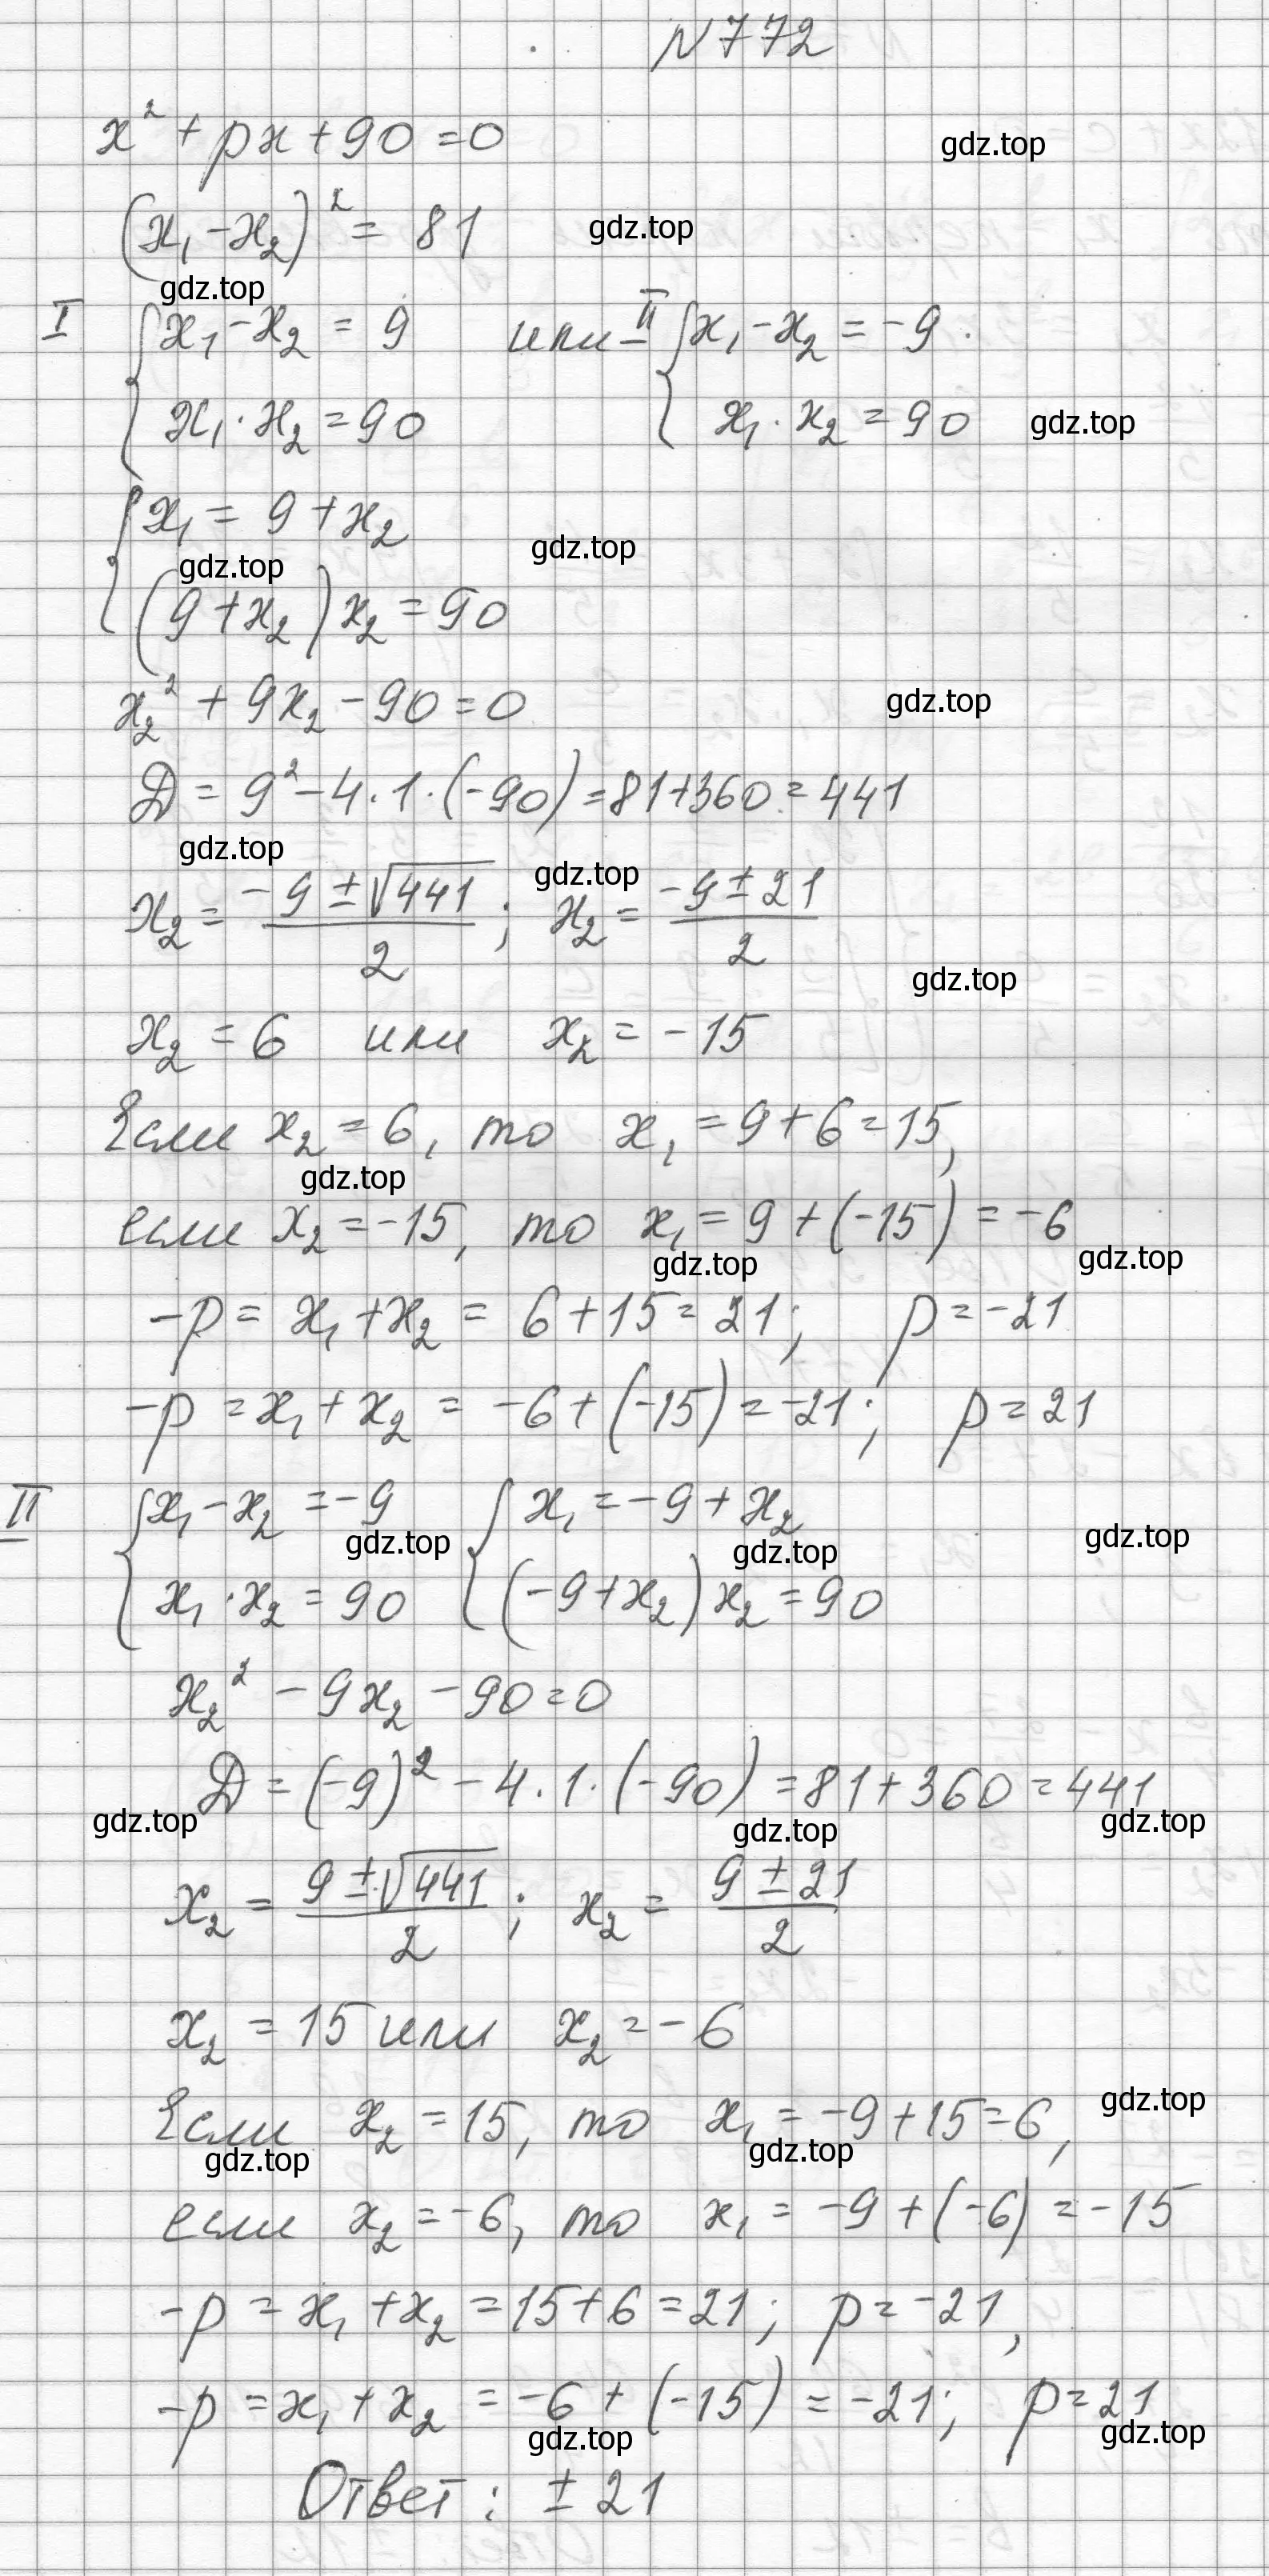 №772
x² + px + 90 = 0
gdz.top
(x₁ - x₂)² = 81
gdz.top
gdz.top
I { x₁ - x₂ = 9 или II { x₁ - x₂ = -9.
x₁ · x₂ = 90 x₁ · x₂ = 90
gdz.top
{ x₁ = 9 + x₂
gdz.top
gdz.top
(9 + x₂) x₂ = 90
x₂² + 9x₂ - 90 = 0
gdz.top
D = 9² - 4 · 1 · (-90) = 81 + 360 = 441
gdz.top
gdz.top
x₂ = (-9 ± √441)/2 ; x₂ = (-9 ± 21)/2
gdz.top
x₂ = 6 или x₂ = -15
Если x₂ = 6, то x₁ = 9 + 6 = 15,
gdz.top
если x₂ = -15, то x₁ = 9 + (-15) = -6
gdz.top
gdz.top
-p = x₁ + x₂ = 6 + 15 = 21; p = -21
-p = x₁ + x₂ = -6 + (-15) = -21; p = 21
II { x₁ - x₂ = -9 { x₁ = -9 + x₂
gdz.top
gdz.top
gdz.top
x₁ · x₂ = 90 (-9 + x₂) x₂ = 90
x₂² - 9x₂ - 90 = 0
D = (-9)² - 4 · 1 · (-90) = 81 + 360 = 441
gdz.top
gdz.top
gdz.top
x₂ = (9 ± √441)/2 ; x₂ = (9 ± 21)/2
x₂ = 15 или x₂ = -6
Если x₂ = 15, то x₁ = -9 + 15 = 6,
gdz.top
gdz.top
gdz.top
если x₂ = -6, то x₁ = -9 + (-6) = -15
-p = x₁ + x₂ = 15 + 6 = 21; p = -21,
-p = x₁ + x₂ = -6 + (-15) = -21; p = 21
gdz.top
gdz.top
Ответ: ± 21